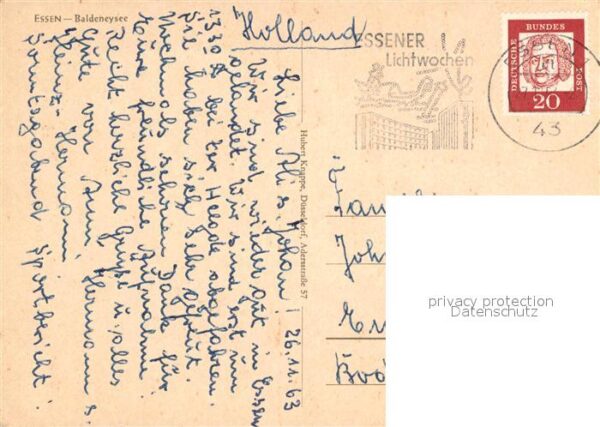 ESSEN — Baldeneysee
Holland
ESSENER
Lichtwochen
DEUTSCHE BUNDESPOST
20
43
Hubert Knippe, Düsseldorf, Adersstraße 57
26.11.63
Liebe Ali u. Johan!
Wir sind wieder gut in Essen
gelandet. Wir sind erst um
13.30 h bei der Heede abgefahren.
Sie haben sich sehr gefreut.
Nochmals schönen Dank für
Eure freundliche Aufnahme
Recht herzliche Grüße u. alles
Gute von Anni, Hermann u.
Heinz-Hermann.
Sonntagabend Sportbericht!
Fam
Joh
privacy protection
Datenschutz